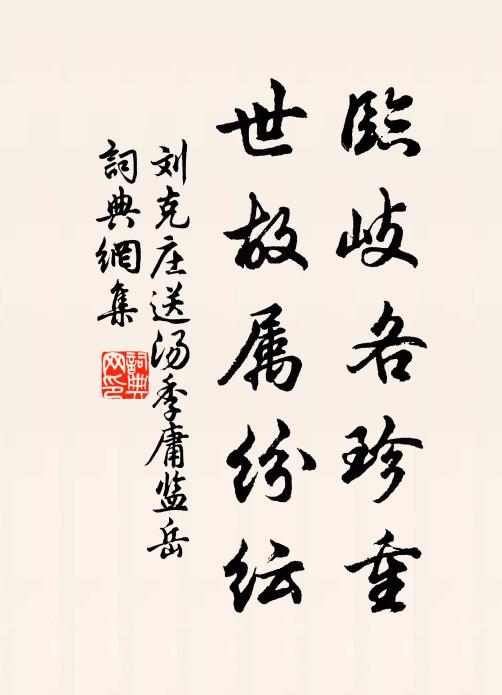 臨岐各珍重
世故属纷纭
刘克庄送汤季庸监岳
詞典網集
詞典
网印